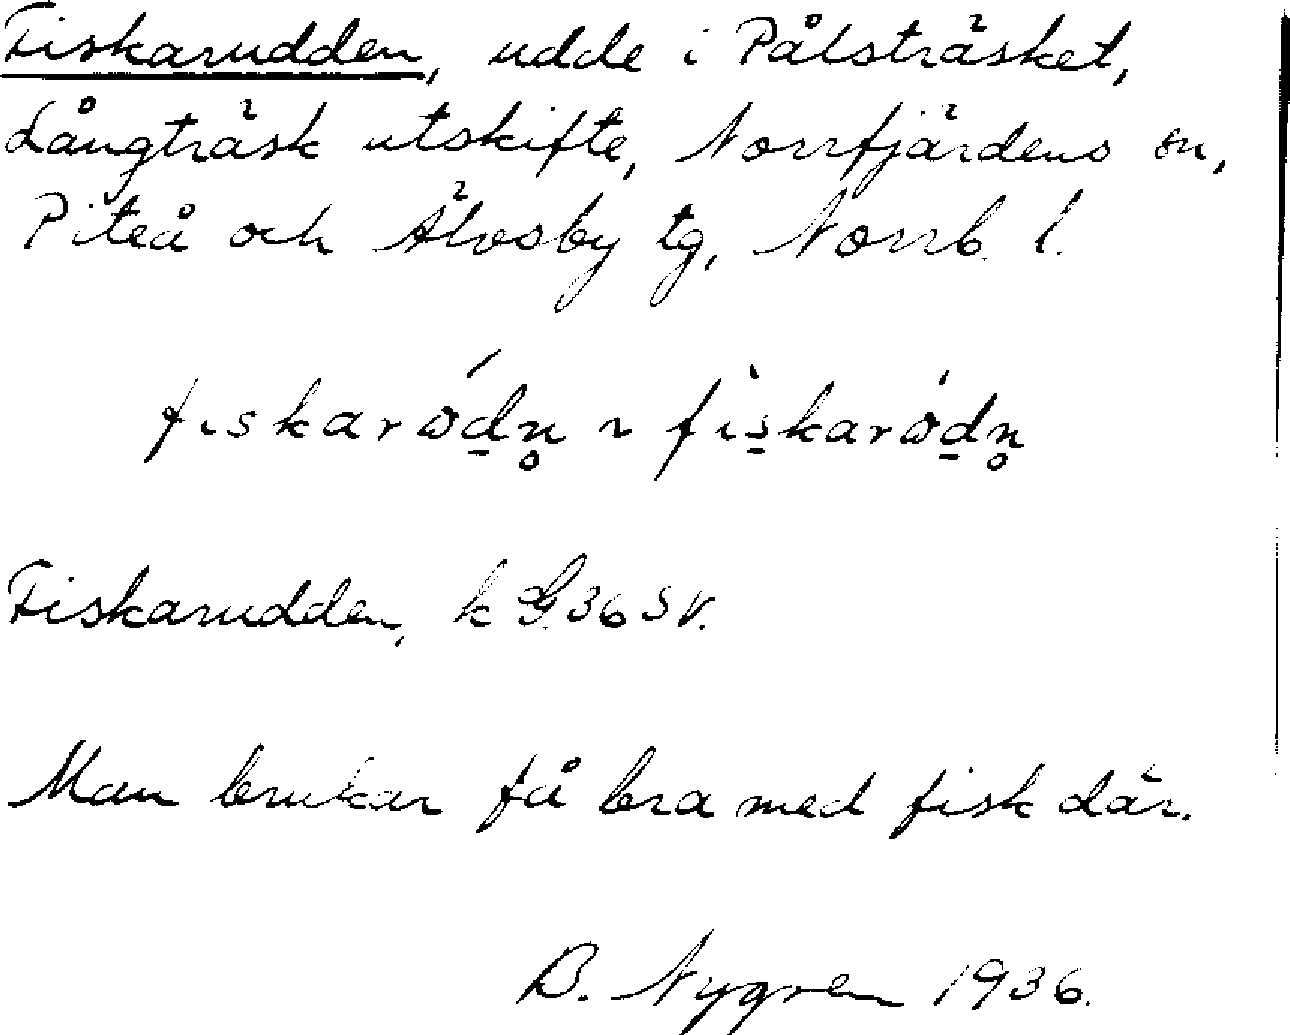 Fiskarudden, udde i Pålsträsket,
Långträsk utskifte, Norrfjärdens sn,
Piteå och Älvsby tg, Norrb. l.
Fiskarudden, k G.36 SV.
Man brukar få bra med fisk där.
B. Nygren 1936.